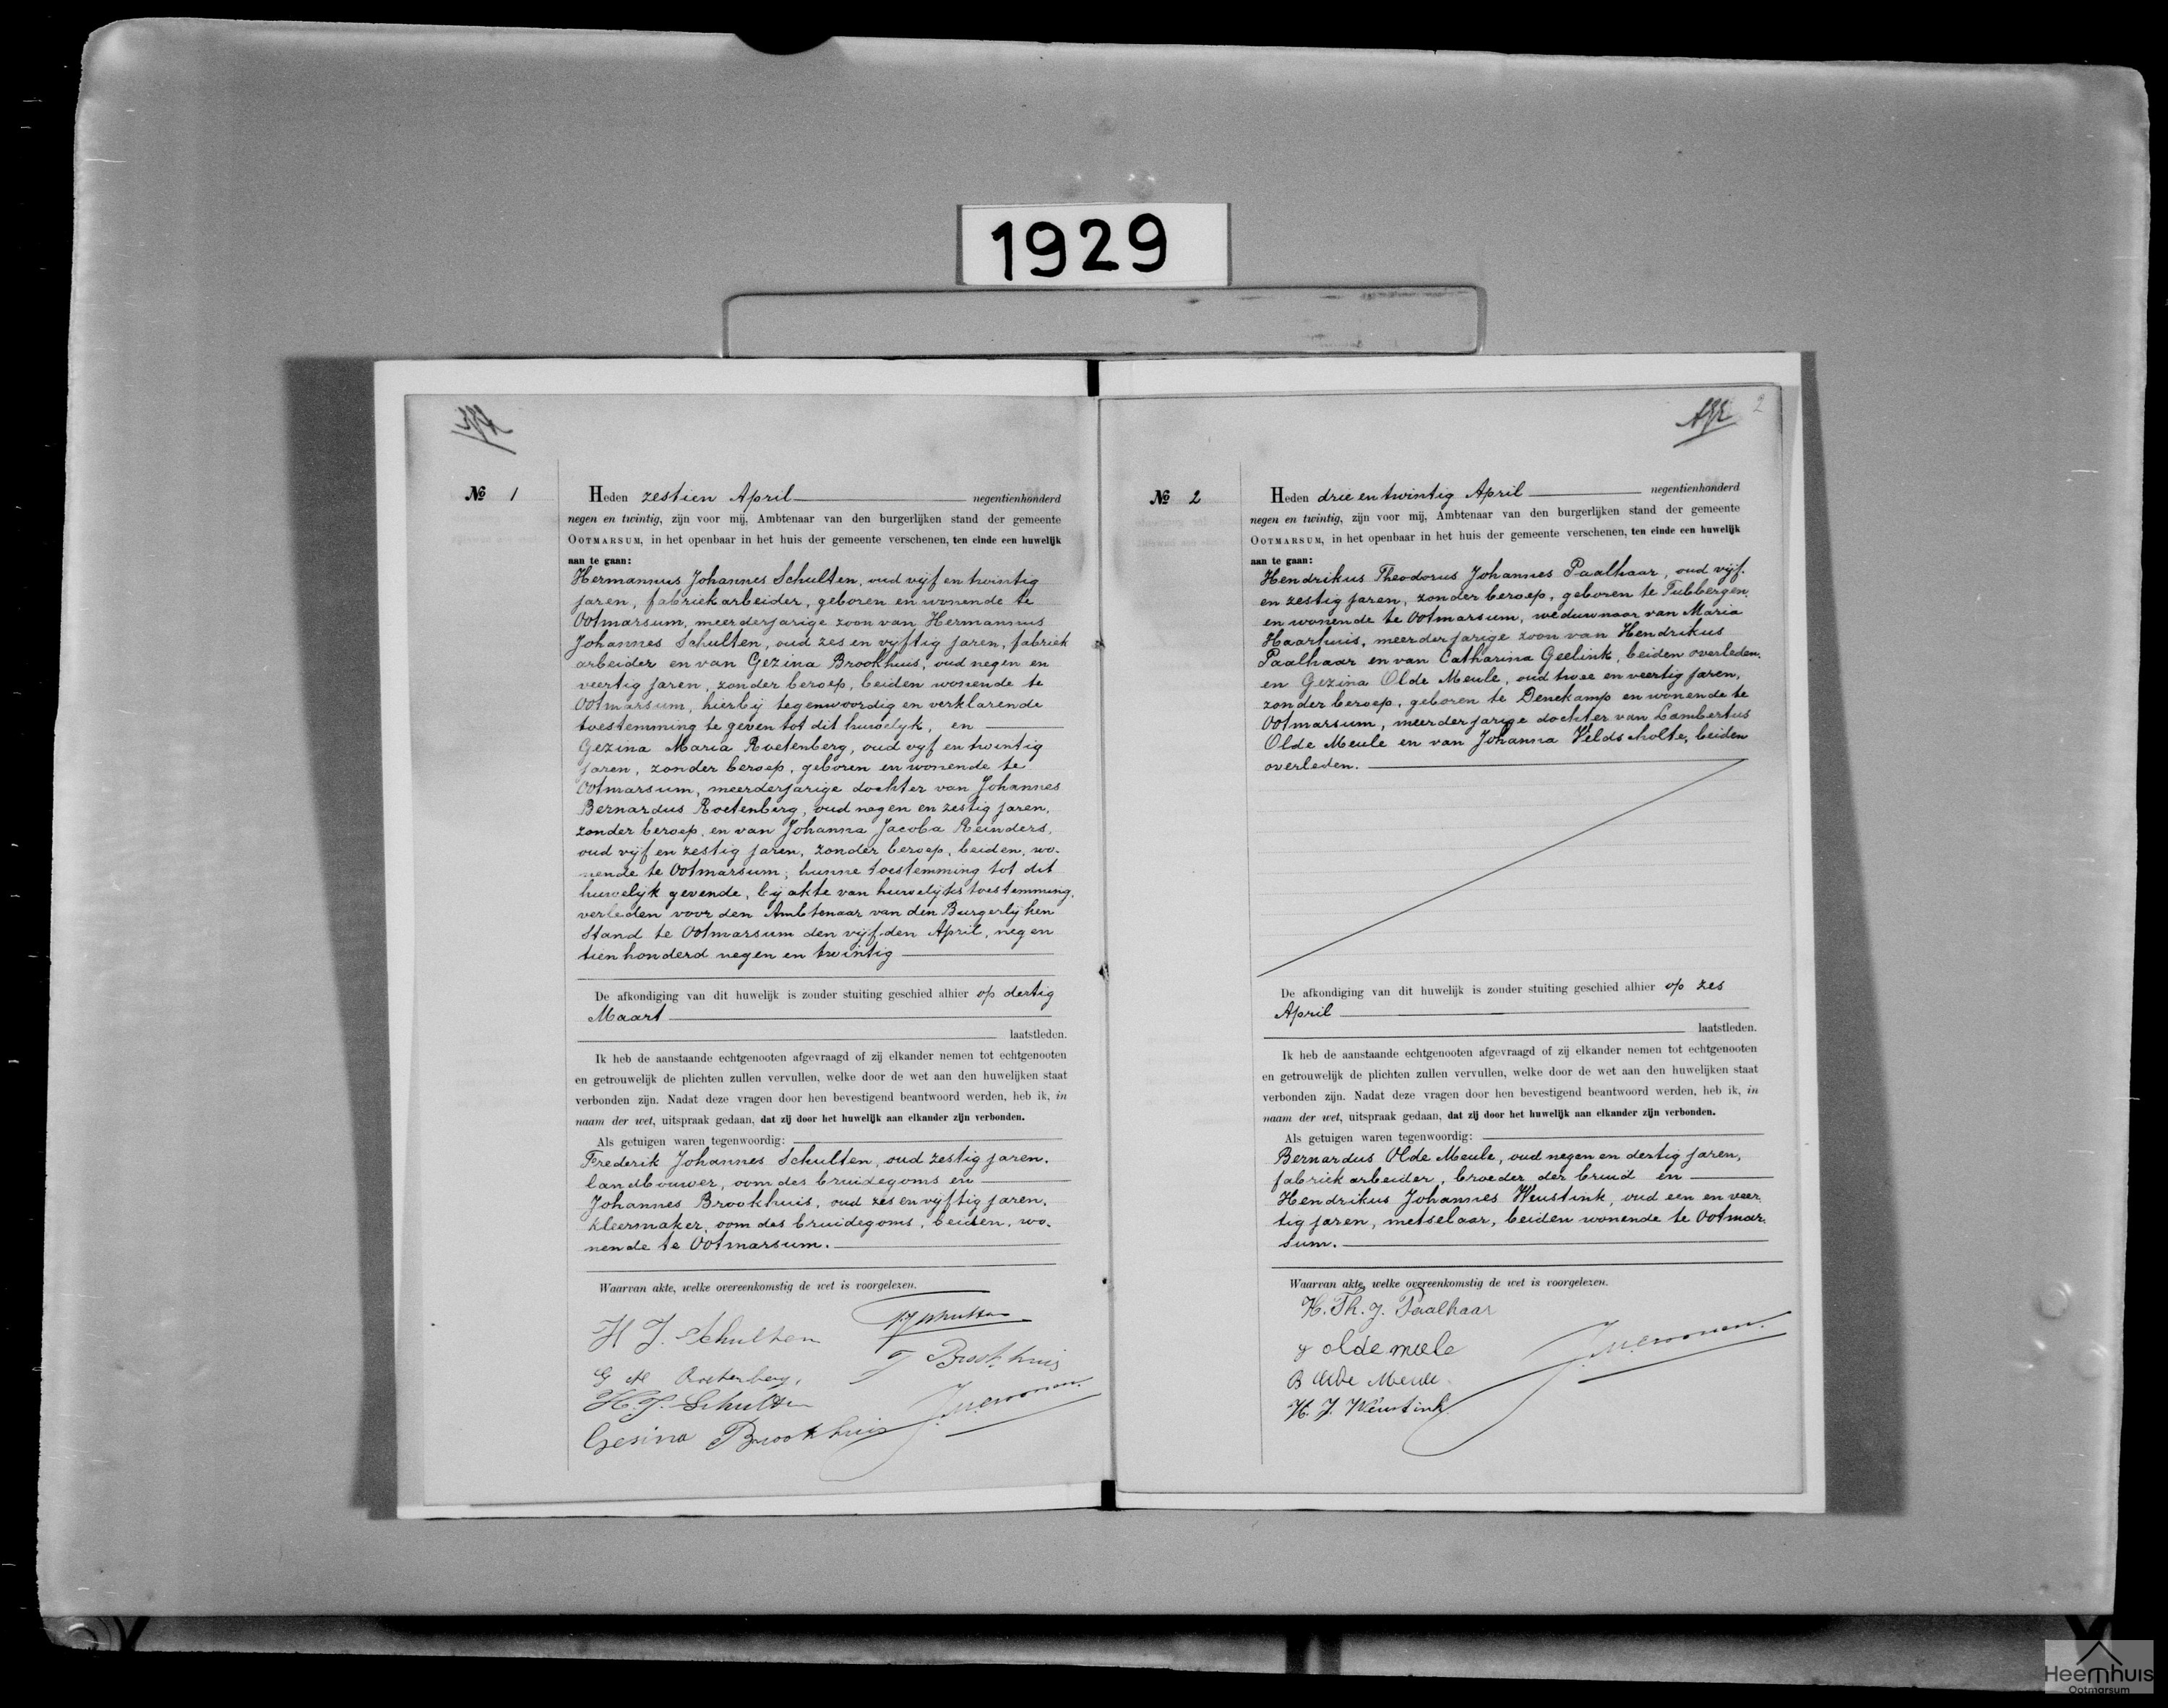 1929
No 1
Heden zestien April negentienhonderd
negen en twintig, zijn voor mij, Ambtenaar van den burgerlijken stand der gemeente
OOTMARSUM, in het openbaar in het huis der gemeente verschenen, ten einde een huwelijk
aan te gaan:
Hermannus Johannes Schulten, oud vijf en twintig
jaren, fabriekarbeider, geboren en wonende te
Ootmarsum, meerderjarige zoon van Hermannus
Johannes Schulten, oud zes en vijftig jaren, fabriek
arbeider en van Gezina Brookhuis, oud negen en
veertig jaren, zonder beroep, beiden wonende te
Ootmarsum, hierbij tegenwoordig en verklarende
toestemming te geven tot dit huwelijk, en
Gezina Maria Roetenberg, oud vijf en twintig
jaren, zonder beroep, geboren en wonende te
Ootmarsum, meerderjarige dochter van Johannes
Bernardus Roetenberg, oud negen en zestig jaren,
zonder beroep, en van Johanna Jacoba Reinders,
oud vijf en zestig jaren, zonder beroep, beiden, wo-
nende te Ootmarsum; hunne toestemming tot dit
huwelijk gevende, bij akte van huwelijkstoestemming,
verleden voor den Ambtenaar van den Burgerlijken
Stand te Ootmarsum den vijfden April, negen
tien honderd negen en twintig
De afkondiging van dit huwelijk is zonder stuiting geschied alhier op dertig
Maart
laatstleden.
Ik heb de aanstaande echtgenooten afgevraagd of zij elkander nemen tot echtgenooten
en getrouwelijk de plichten zullen vervullen, welke door de wet aan den huwelijken staat
verbonden zijn. Nadat deze vragen door hen bevestigend beantwoord werden, heb ik, in
naam der wet, uitspraak gedaan, dat zij door het huwelijk aan elkander zijn verbonden.
Als getuigen waren tegenwoordig:
Frederik Johannes Schulten, oud zestig jaren,
landbouwer, oom des bruidegoms en
Johannes Brookhuis, oud zes en vijftig jaren,
kleermaker, oom des bruidegoms, beiden, wo-
nende te Ootmarsum.
Waarvan akte, welke overeenkomstig de wet is voorgelezen.
H J. Schulten
J Brookhuis
G M Roetenberg,
H. J. Schulten
Gesina Brookhuis
2
No 2
Heden drie en twintig April negentienhonderd
negen en twintig, zijn voor mij, Ambtenaar van den burgerlijken stand der gemeente
OOTMARSUM, in het openbaar in het huis der gemeente verschenen, ten einde een huwelijk
aan te gaan:
Hendrikus Theodorus Johannes Paalhaar, oud vijf-
en zestig jaren, zonder beroep, geboren te Tubbergen,
en wonende te Ootmarsum, weduwnaar van Maria
Haarhuis, meerderjarige zoon van Hendrikus
Paalhaar en van Catharina Geelink, beiden overleden.
en Gezina Olde Meule, oud twee en veertig jaren,
zonder beroep, geboren te Denekamp en wonende te
Ootmarsum, meerderjarige dochter van Lambertus
Olde Meule en van Johanna Veldscholte, beiden
overleden.
De afkondiging van dit huwelijk is zonder stuiting geschied alhier op zes
April
laatstleden.
Ik heb de aanstaande echtgenooten afgevraagd of zij elkander nemen tot echtgenooten
en getrouwelijk de plichten zullen vervullen, welke door de wet aan den huwelijken staat
verbonden zijn. Nadat deze vragen door hen bevestigend beantwoord werden, heb ik, in
naam der wet, uitspraak gedaan, dat zij door het huwelijk aan elkander zijn verbonden.
Als getuigen waren tegenwoordig:
Bernardus Olde Meule, oud negen en dertig jaren,
fabriekarbeider, broeder der bruid en
Hendrikus Johannes Weustink, oud een en veer-
tig jaren, metselaar, beiden wonende te Ootmar-
sum.
Waarvan akte, welke overeenkomstig de wet is voorgelezen.
H. Th. J. Paalhaar
g olde meule
B Olde Meule
H. J. Weustink
Heemhuis
Ootmarsum